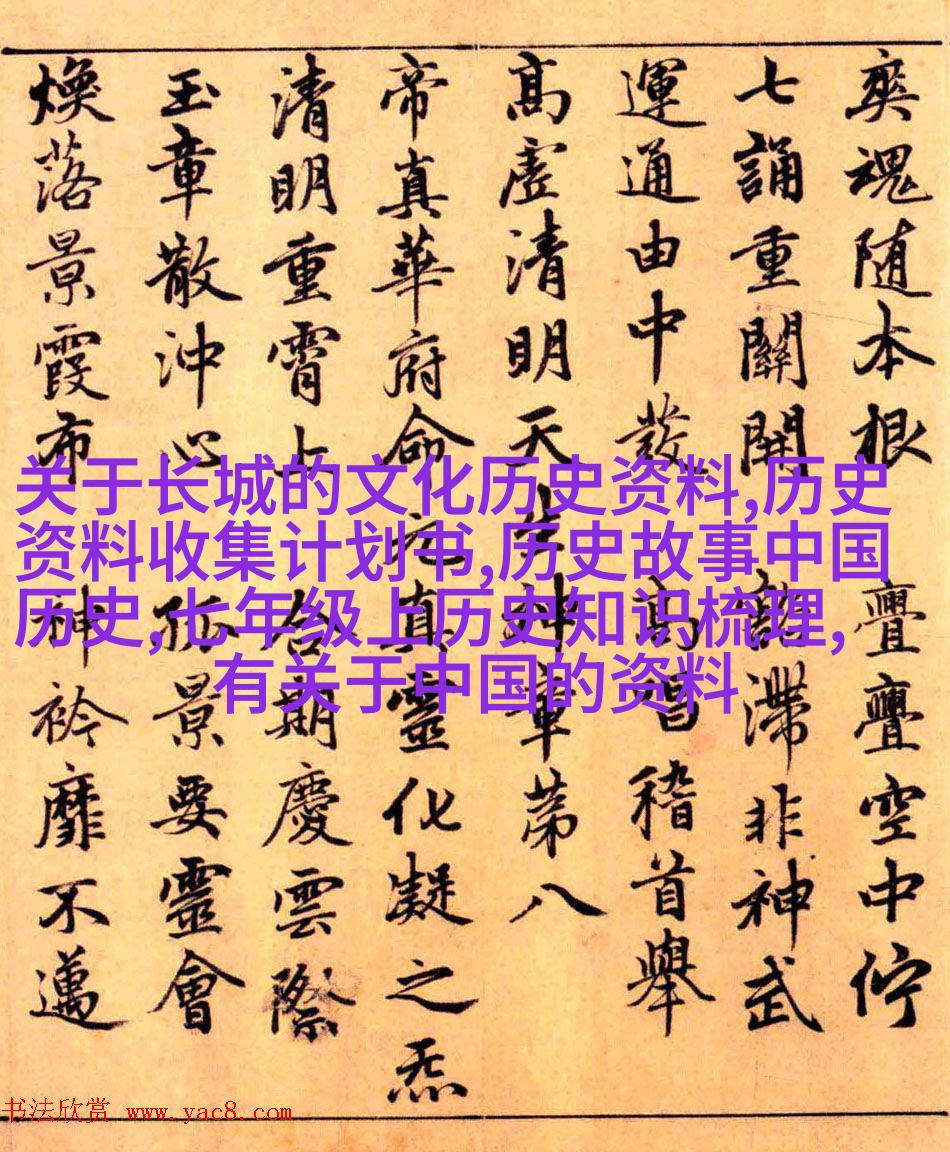 爽魂随本根 亹亹空中佇
七誦重關開 豁滯非神武
運通由中發 高唱稽首舉
高虛清明天生神章第八
帝真華府命元真靈化凝之炁
清明重霄上 合期慶雲際
玉章散沖心 孤景要靈會
煥落景霞布 神衿靡不邁
关于长城的文化历史资料,历史
资料收集计划书,历史故事中国
历史,七年级上历史知识梳理,
有关于中国的资料
书法欣赏 www.yac8.com